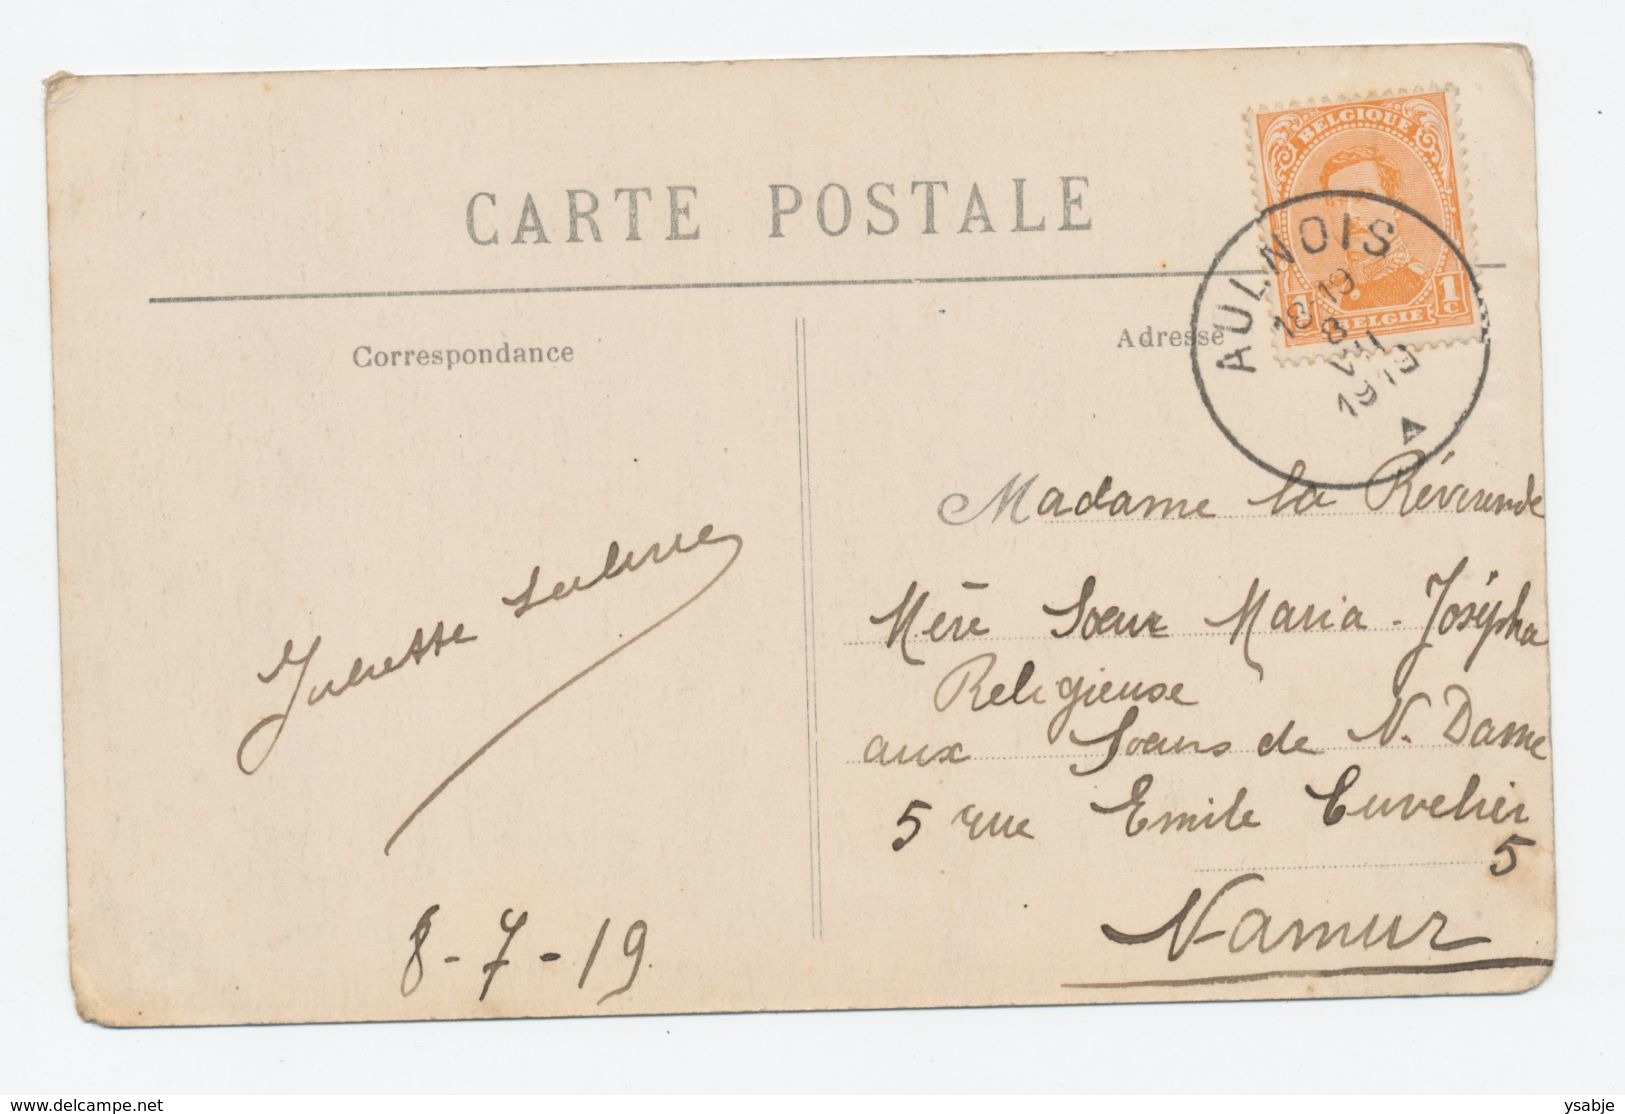 CARTE POSTALE
Correspondance
Adresse
BELGIQUE
1c
BELGIE
AULNOIS
18-19
8
VII
1919
Madame la Révérende
Mère Soeur Maria-Josépha
Religieuse
aux Soeurs de N. Dame
5 rue Emile Cuvelier
5
Namur
Juliette
8-7-19
delcampe.net
ysabje